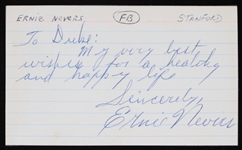 ERNIE NEVERS FB STANFORD
To Duke:
My very best
wishes for a healthy
and happy life
Sincerely,
Ernie Nevers